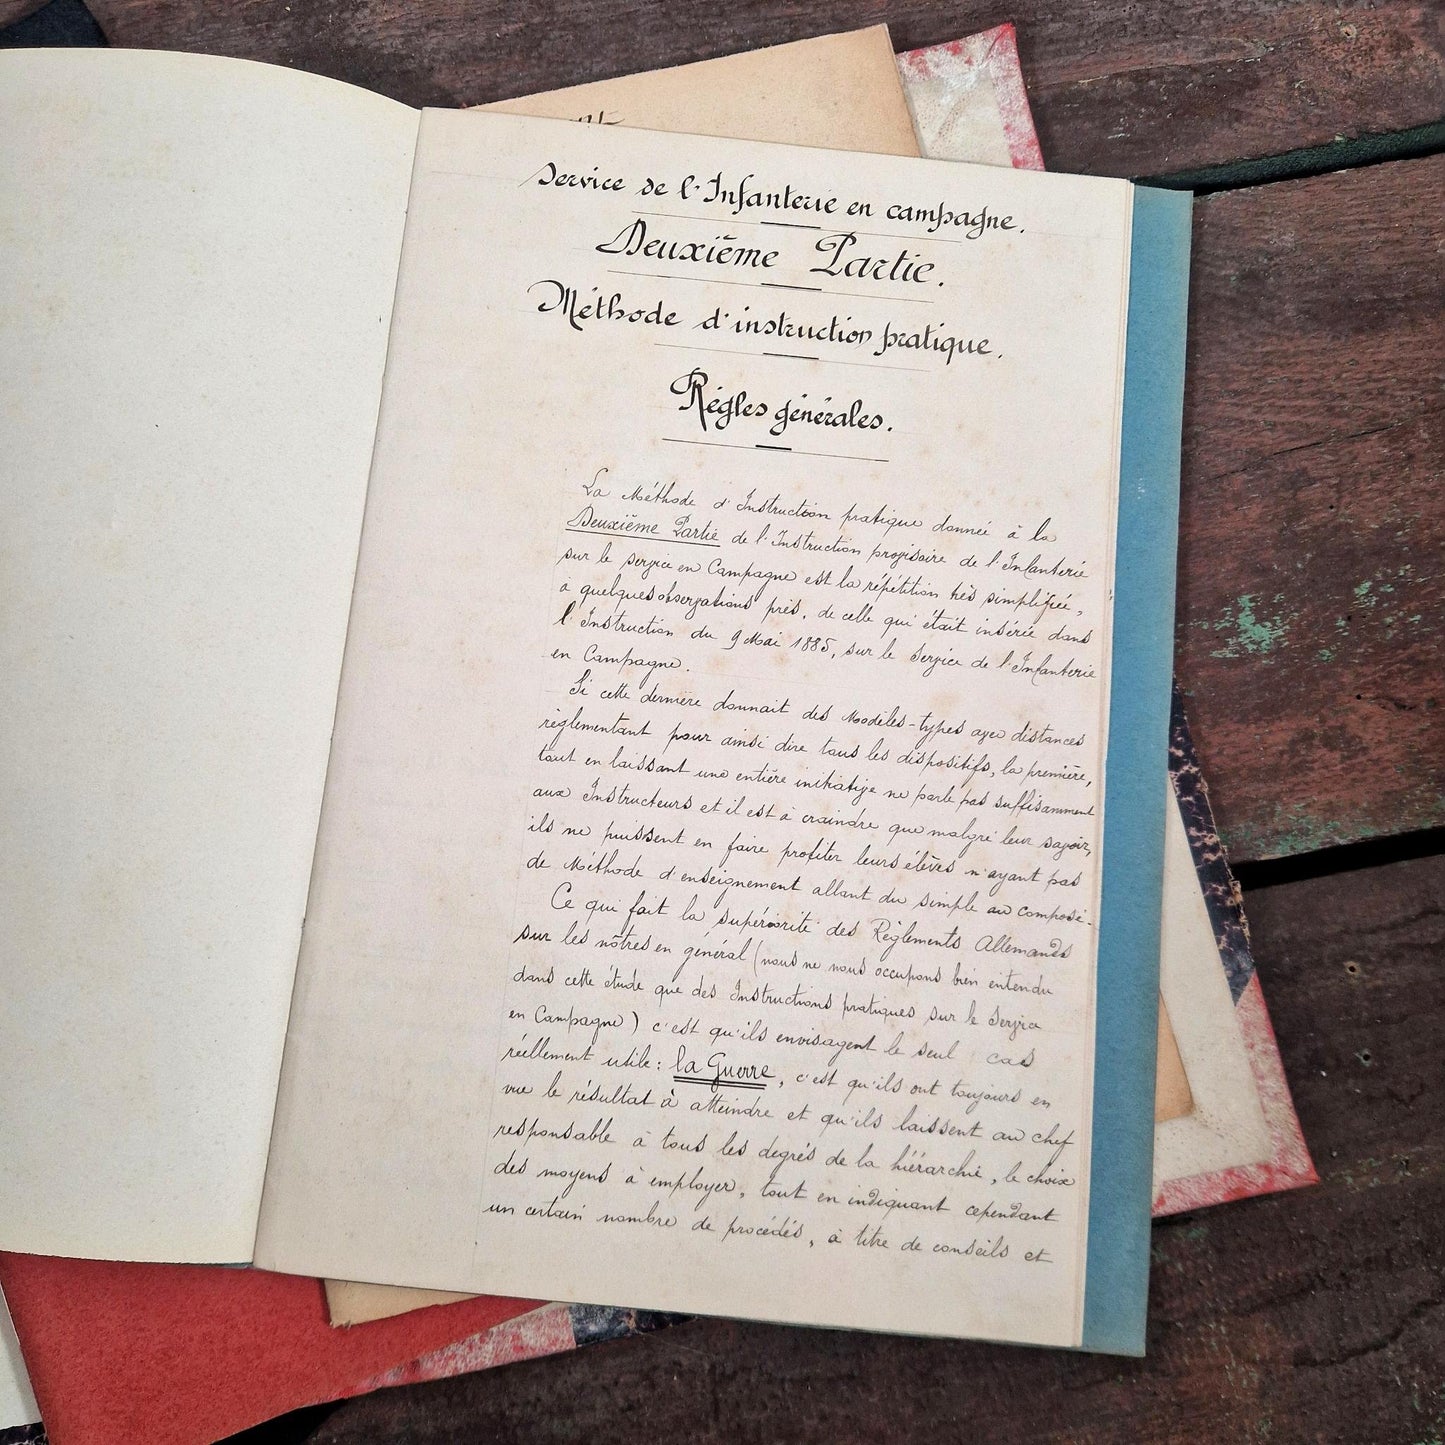 Service de l'Infanterie en campagne.
Deuxième Partie.
Méthode d'instruction pratique.
Règles générales.
La Méthode d'Instruction pratique donnée à la
Deuxième Partie de l'Instruction provisoire de l'Infanterie
sur le service en Campagne est la répétition très simplifiée,
à quelques observations près, de celle qui était insérée dans
l'Instruction du 9 Mai 1885, sur le Service de l'Infanterie
en Campagne.
Si cette dernière donnait des Modèles-types avec distances
règlementant pour ainsi dire tous les dispositifs, la première,
tout en laissant une entière initiative ne parle pas suffisamment
aux Instructeurs et il est à craindre que malgré leur savoir,
ils ne puissent en faire profiter leurs élèves n'ayant pas
de Méthode d'enseignement allant du simple au composé.
Ce qui fait la supériorité des Règlements Allemands
sur les nôtres en général (nous ne nous occupons bien entendu
dans cette étude que des Instructions pratiques sur le Service
en Campagne) c'est qu'ils envisagent le seul cas
réellement utile: la Guerre, c'est qu'ils ont toujours en
vue le résultat à atteindre et qu'ils laissent au chef
responsable à tous les degrés de la hiérarchie, le choix
des moyens à employer, tout en indiquant cependant
un certain nombre de procédés, à titre de conseils et